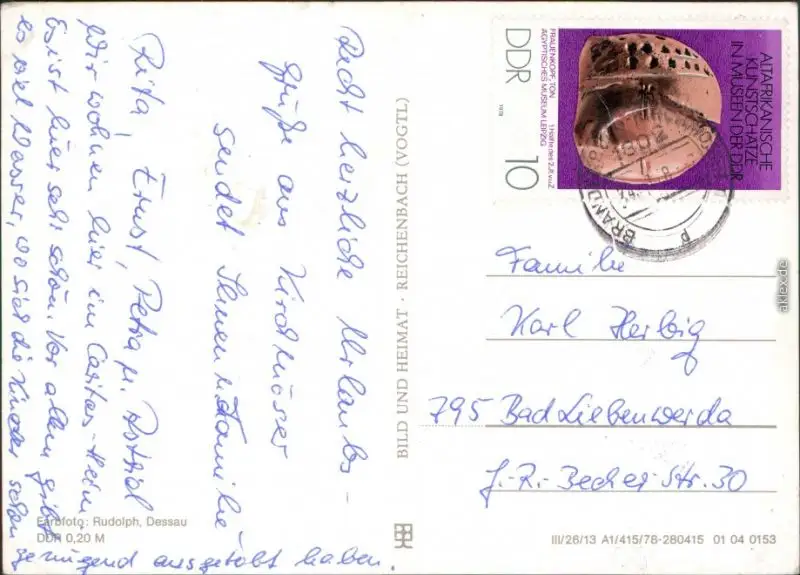 Recht herzliche Urlaubs-
grüße aus Kirchmöser
sendet Ihnen u. Familie
Rita, Ernst, Petra u. Astrid
Wir wohnen hier im Caritas-Heim.
Es ist hier sehr schön. Vor allem gibt
es viel Wasser, wo sich die Kinder schon
genügend ausgetobt haben.
Farbfoto: Rudolph, Dessau
DDR 0,20 M
BILD UND HEIMAT · REICHENBACH (VOGTL)
ALTAFRIKANISCHE
KUNSTSCHÄTZE
IN MUSEEN DER DDR
FRAUENKOPF, TON
ÄGYPTISCHES MUSEUM LEIPZIG
1. Hälfte des 2. Jt. v. u. Z.
DDR
1978
10
BRANDE
Familie
Karl Herbig
795 Bad Liebenwerda
J.-R.-Becher-Str. 30
III/26/13 A1/415/78-280415 01 04 0153
akpool.de